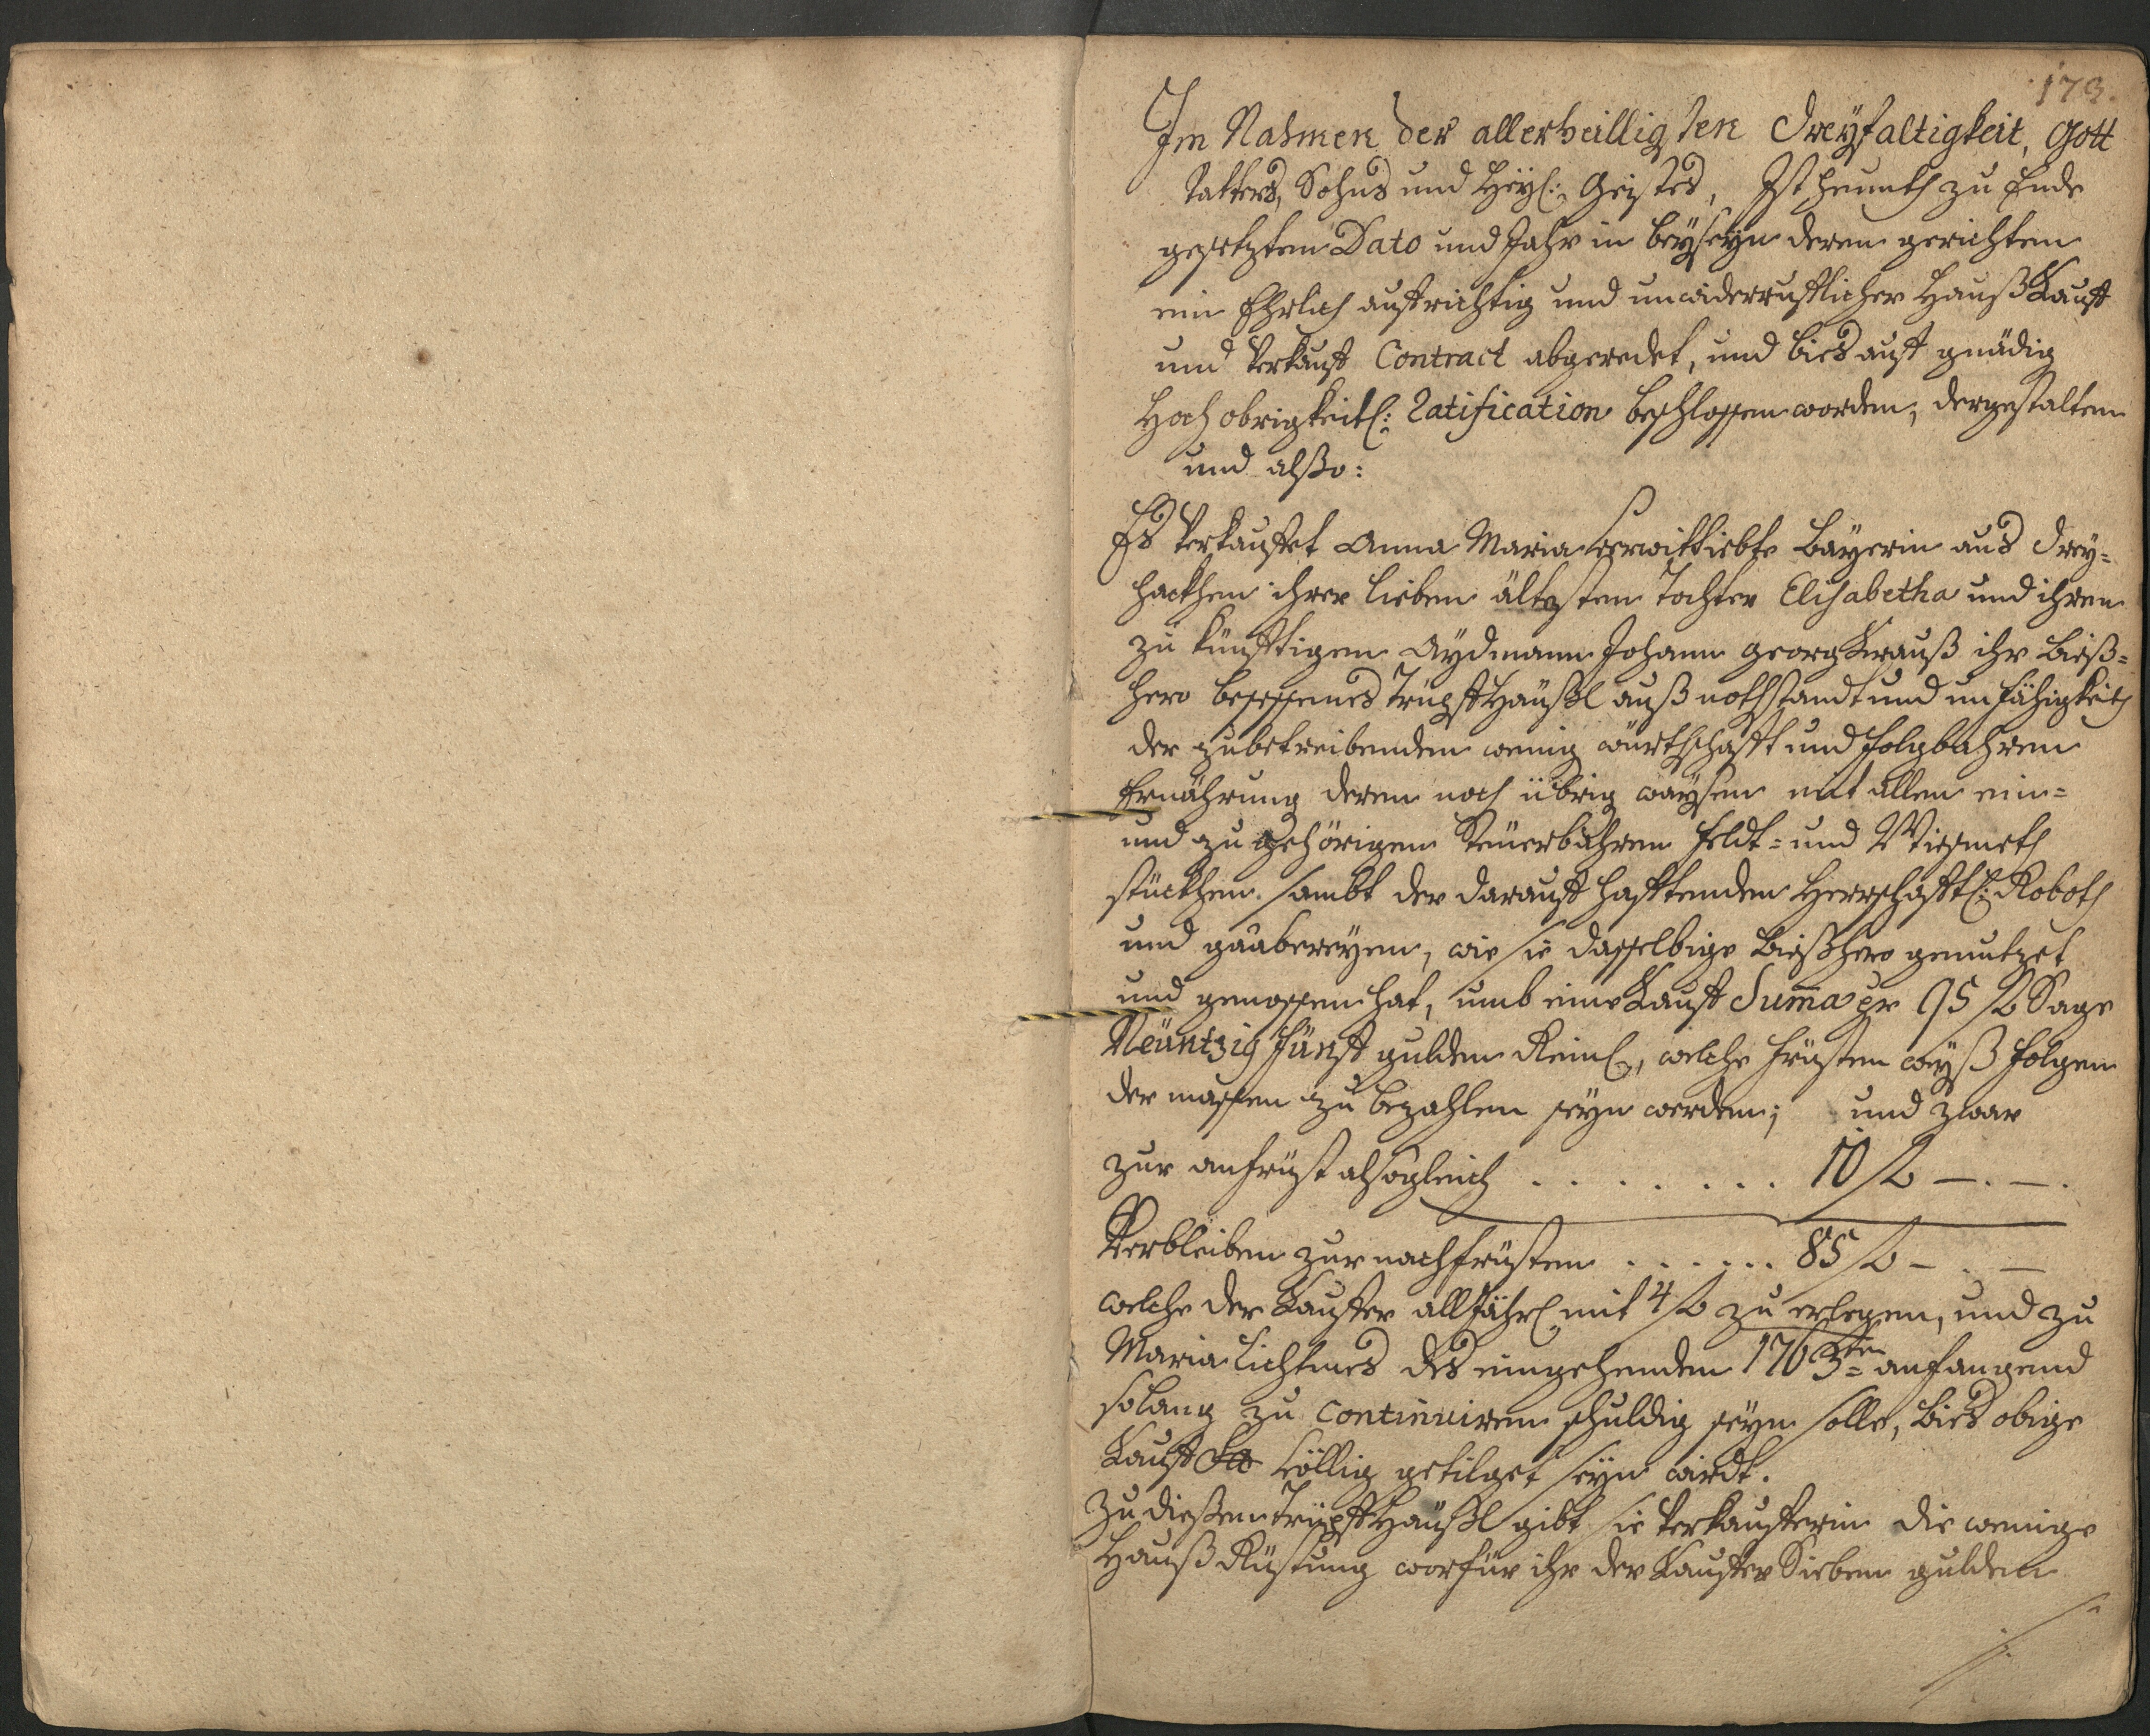 173.
Im Nahmen der allerheilligsten Dreyfaltigkeit, Gott
Vatters, Sohns und Heyl: Geistes, Ist heunth zu Ende
gesetzten Dato und Jahr in beyseyn deren gerichten
ein Ehrlich aufrichtig und unwiderrufflicher Hauß Kauff
und Verkauff Contract abgeredet, und bies auff gnädig
Hoch obrigkeitl: Ratification beschlossen worden, dergestalten
und alßo:
Es Verkauffet Anna Maria verwittiebte Bayerin aus Drey=
hackhen ihrer lieben ältesten Tochter Elisabetha und ihren
zu künfftigen Aydmann Johann Georg Krauß ihr bieß=
hero besessenes Trüpff Häußl auß nothstandt und unfähigkeith
der zubetreibenden wenig würthschafft und folgbahren
Ernährung deren noch übrig waysen mit allen ein=
und zu gehörigen Steuerbahren feldt= und Wiesmeth
stückhen sambt der darauff hafftenden Herrschafftl: Roboth
und gaabereyen, wie sie dasselbige bießhero genutzet
und genossen hat, umb eine Kauff Suma pr 95 f Sage
Neüntzig fünff gulden Reinl, welche früsten weyß folgen
der massen zu bezahlen seyn werden; und zwar
zur anfrüst alsogleich . . . . . . . 10 f —.—.
Verbleiben zur nachfrüsten . . . . . . 85 f — . —
welche der Kauffer all Jährl mit 4 f zu erlegen, und zu
Maria Lichtmes des eingehenden 1763ten anfangend
solang zu Continuiren schuldig seyn solle, bies obige
Kauff völlig getilget seyn wirdt.
Zu dießen Trüpff Häußl gibt sie Verkaufferin die wenige
Hauß Rüstung worfür ihr der Kauffer Sieben gulden